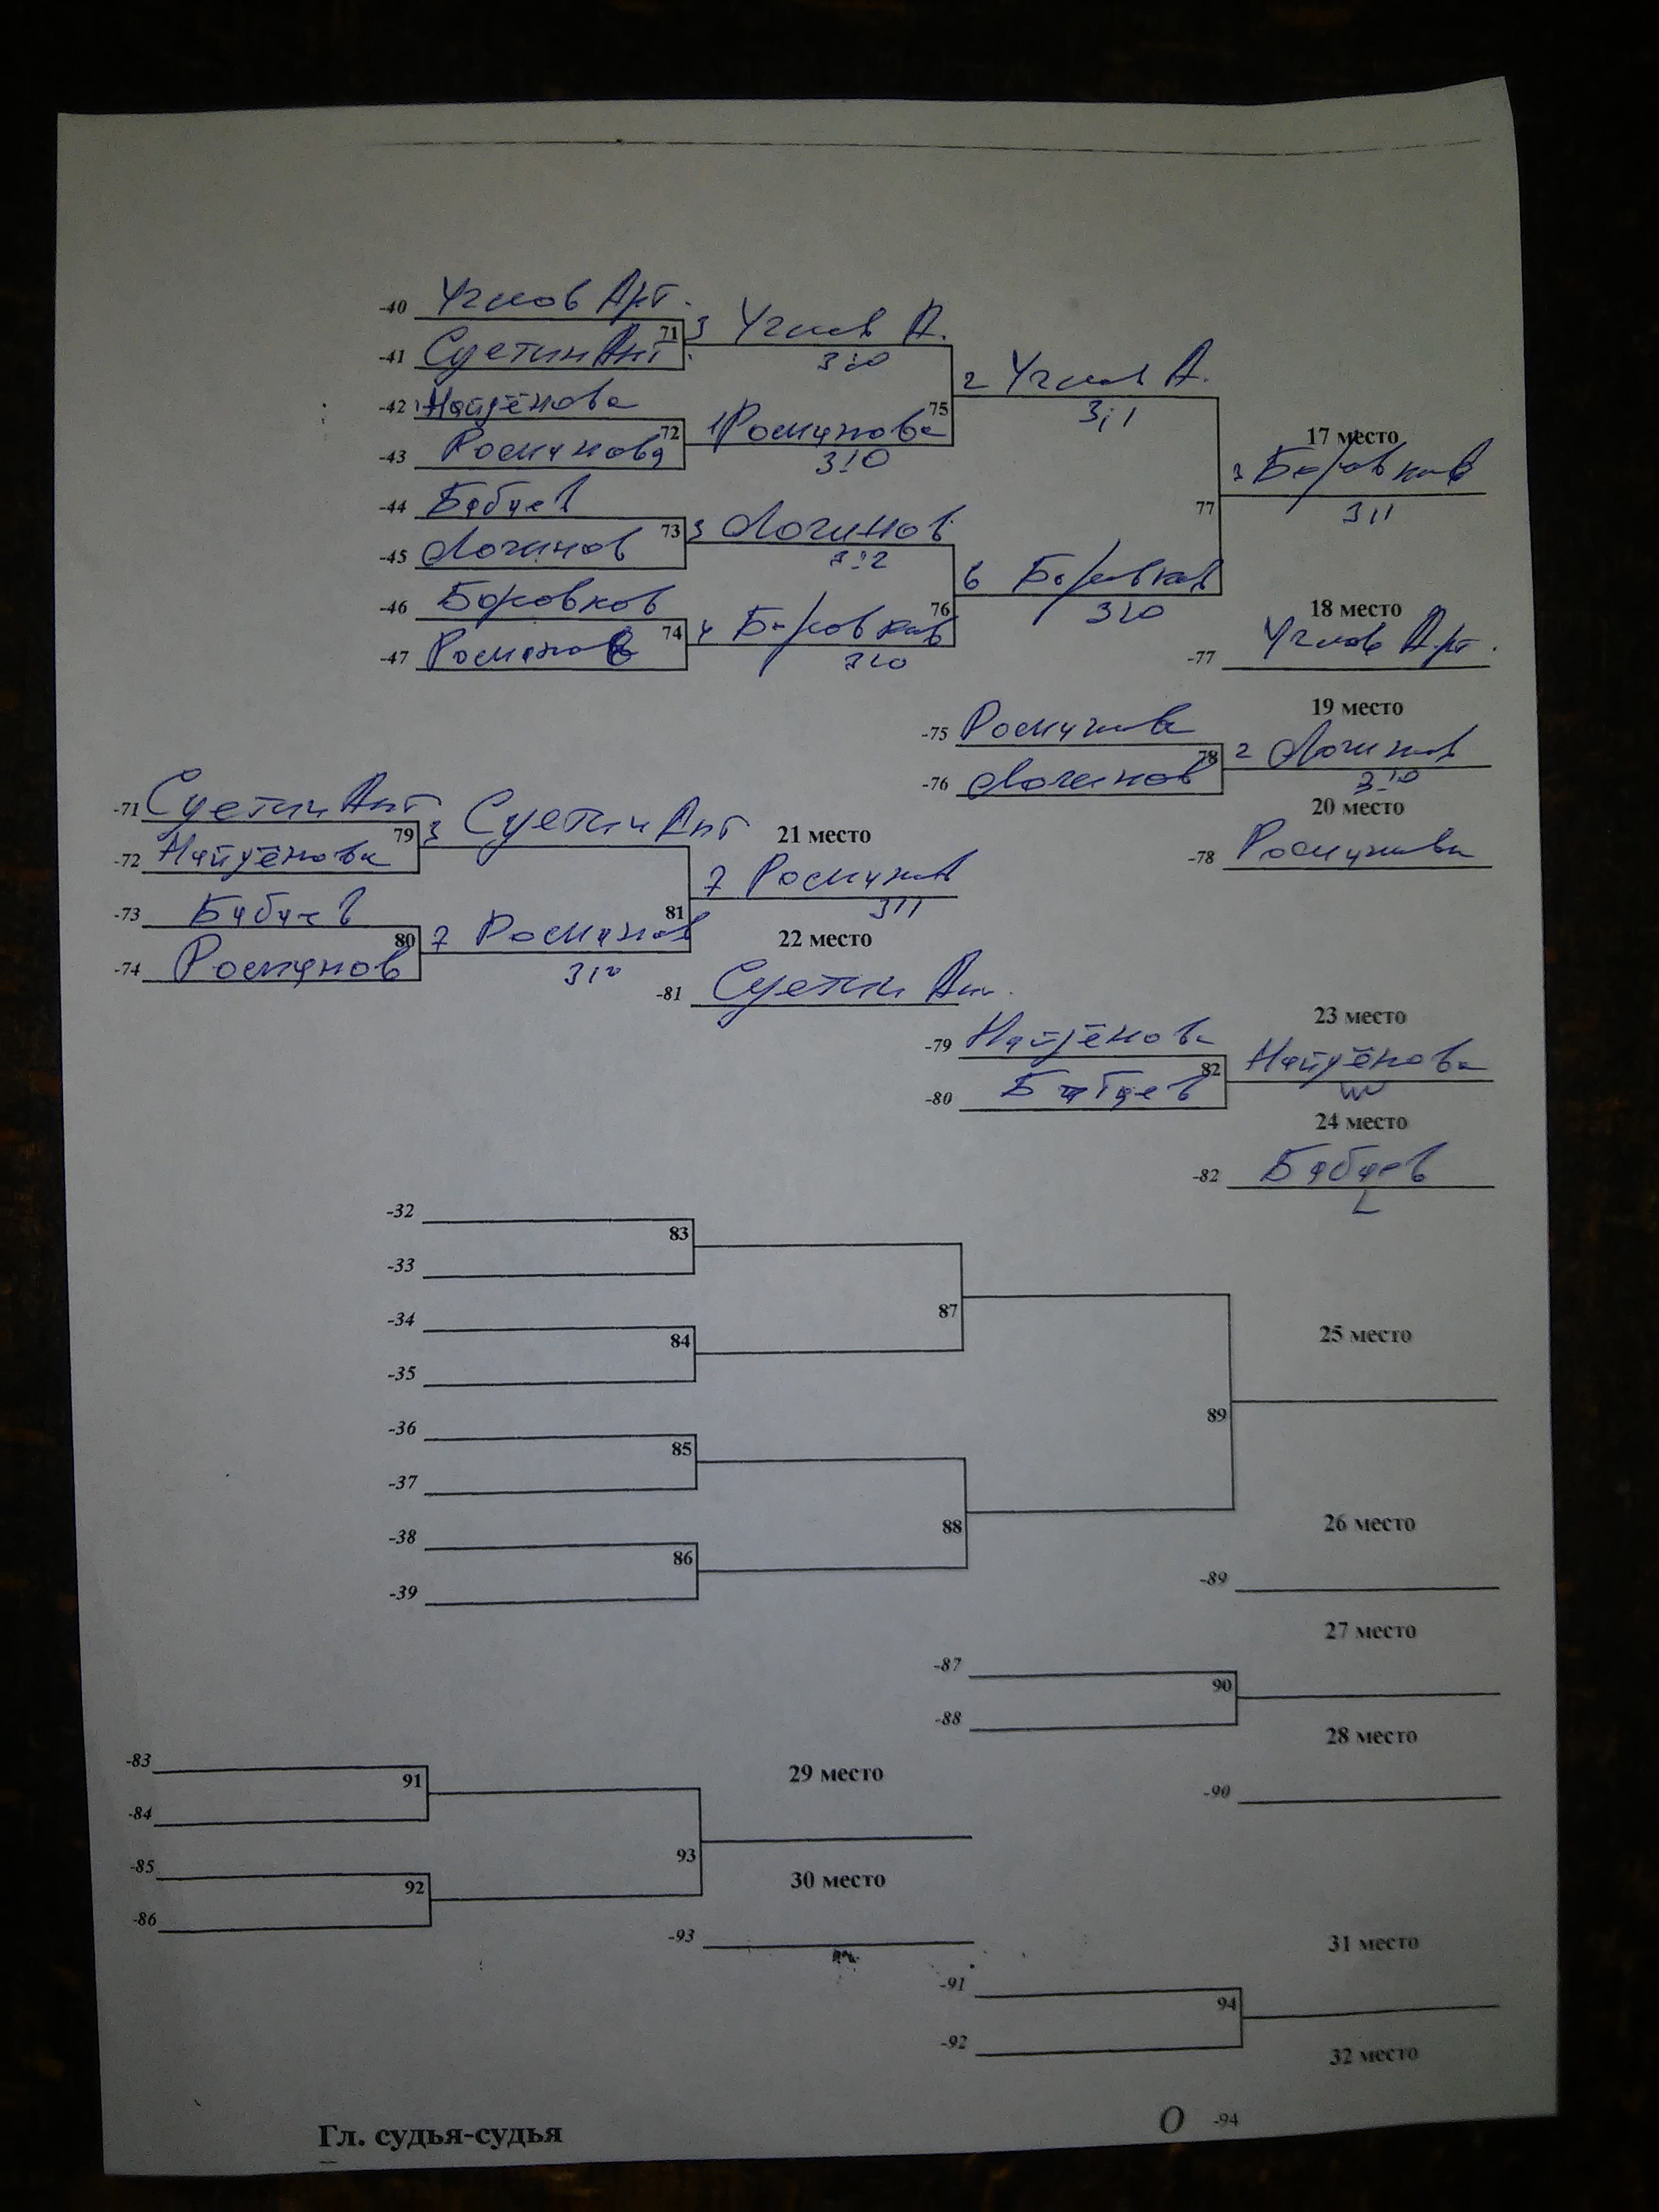 -40 Углов Арт.
71 3 Углов А.
-41 Суетин Ант.
3:0
2 Углов А.
-42 Найдёнова
75
3:1
72 1 Романова
17 место
-43 Романова
3:0
3 Боровков
-44 Бабаев
77
3:1
73 3 Логинов
-45 Логинов
3:2
6 Боровков
-46 Боровков
76
3:0
18 место
74 4 Боровков
-47 Романов
3:0
-77 Углов Арт.
19 место
-75 Романова
78 2 Логинов
-76 Логинов
3:0
20 место
-71 Суетин Ант
79 3 Суетин Ант
21 место
-72 Найдёнова
-78 Романова
7 Романов
-73 Бабаев
81
3:1
80 7 Романов
22 место
-74 Романов
3:0
-81 Суетин Ант.
23 место
-79 Найдёнова
82 Найдёнова
-80 Бабаев
W
24 место
-82 Бабаев
L
-32
83
-33
-34
87
84
25 место
-35
89
-36
85
-37
26 место
88
-38
86
-39
-89
27 место
-87
90
-88
28 место
-83
91
29 место
-84
-90
93
-85
92
30 место
-86
-93
31 место
-91
94
-92
32 место
Гл. судья-судья
О -94